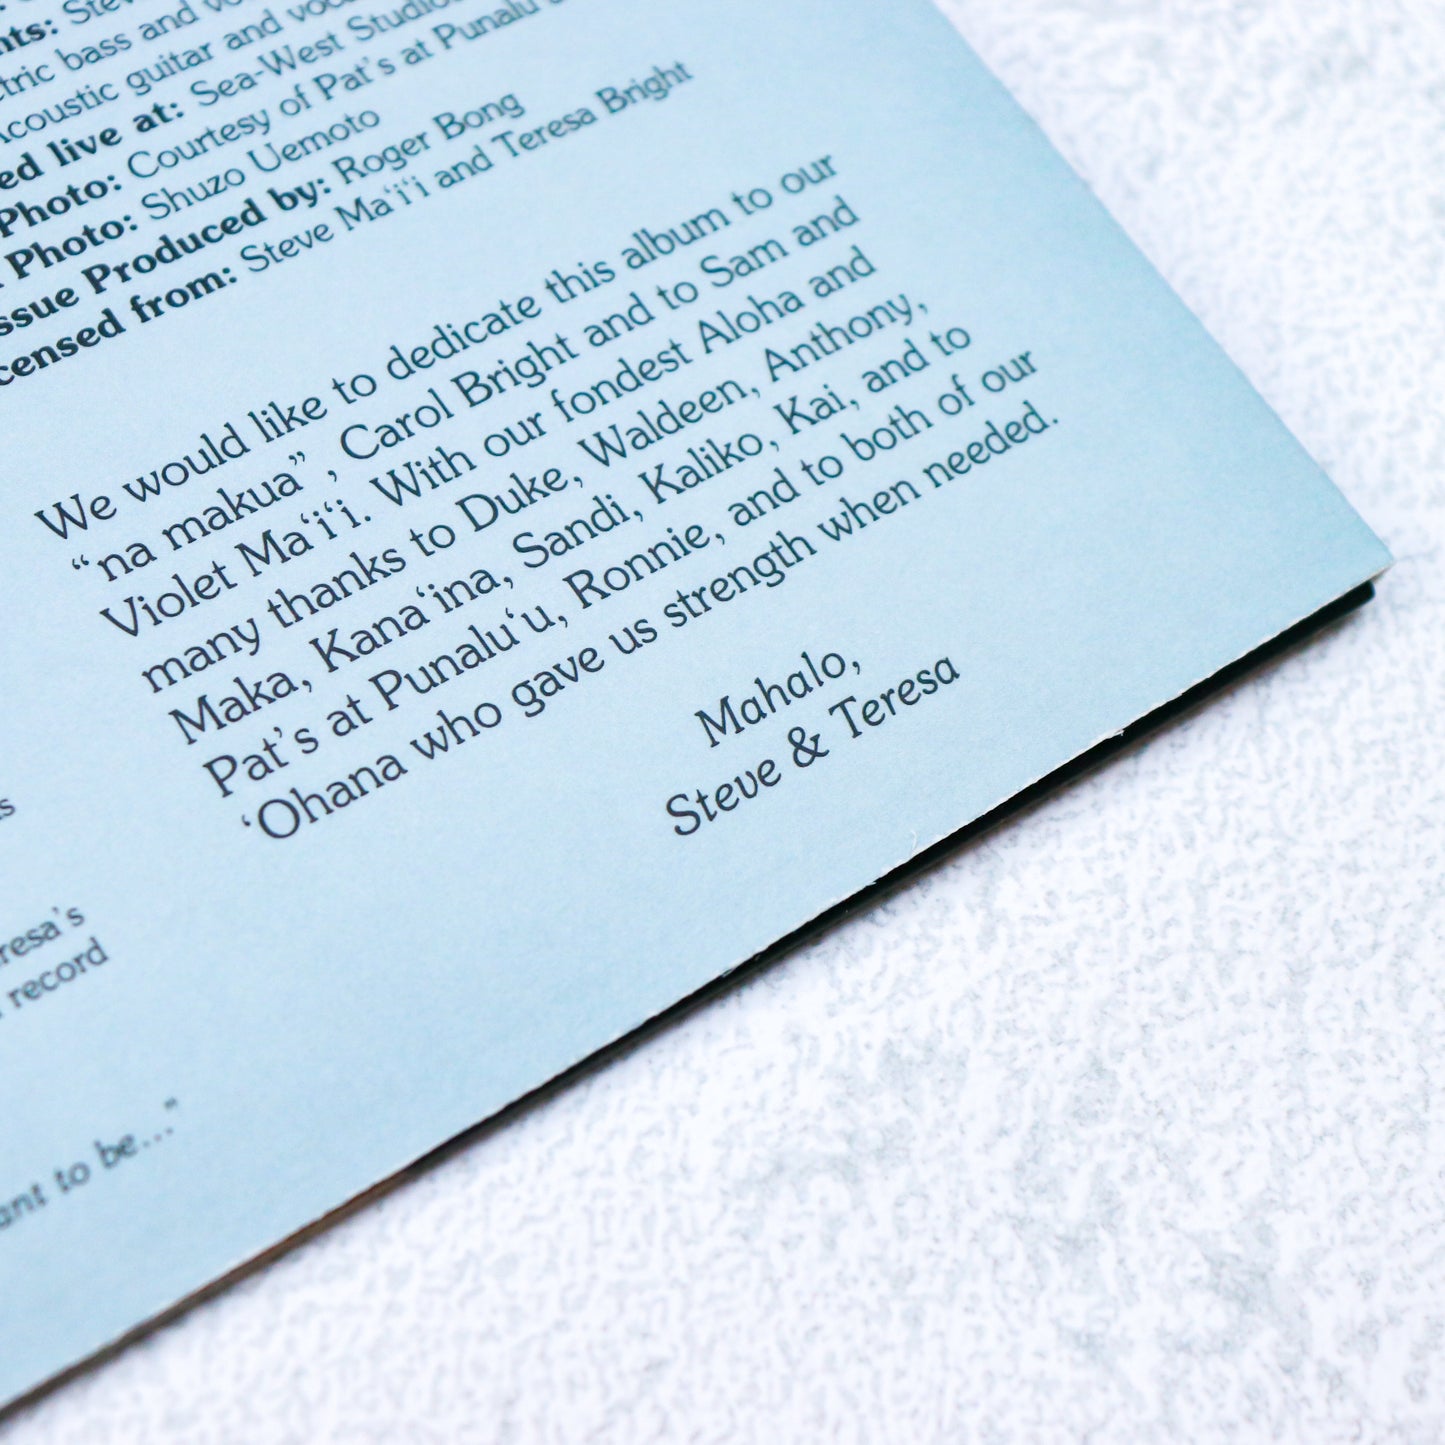 nts: Steve
tric bass and vo
Acoustic guitar and voca
ed live at: Sea-West Studios
Photo: Courtesy of Pat's at Punalu'u
Photo: Shuzo Uemoto
ssue Produced by: Roger Bong
censed from: Steve Maʻiʻi and Teresa Bright
We would like to dedicate this album to our
“na makua”, Carol Bright and to Sam and
Violet Maʻiʻi. With our fondest Aloha and
many thanks to Duke, Waldeen, Anthony,
Maka, Kanaʻina, Sandi, Kaliko, Kai, and to
Pat’s at Punaluʻu, Ronnie, and to both of our
ʻOhana who gave us strength when needed.
Mahalo,
Steve & Teresa
s
resa's
record
ant to be..."